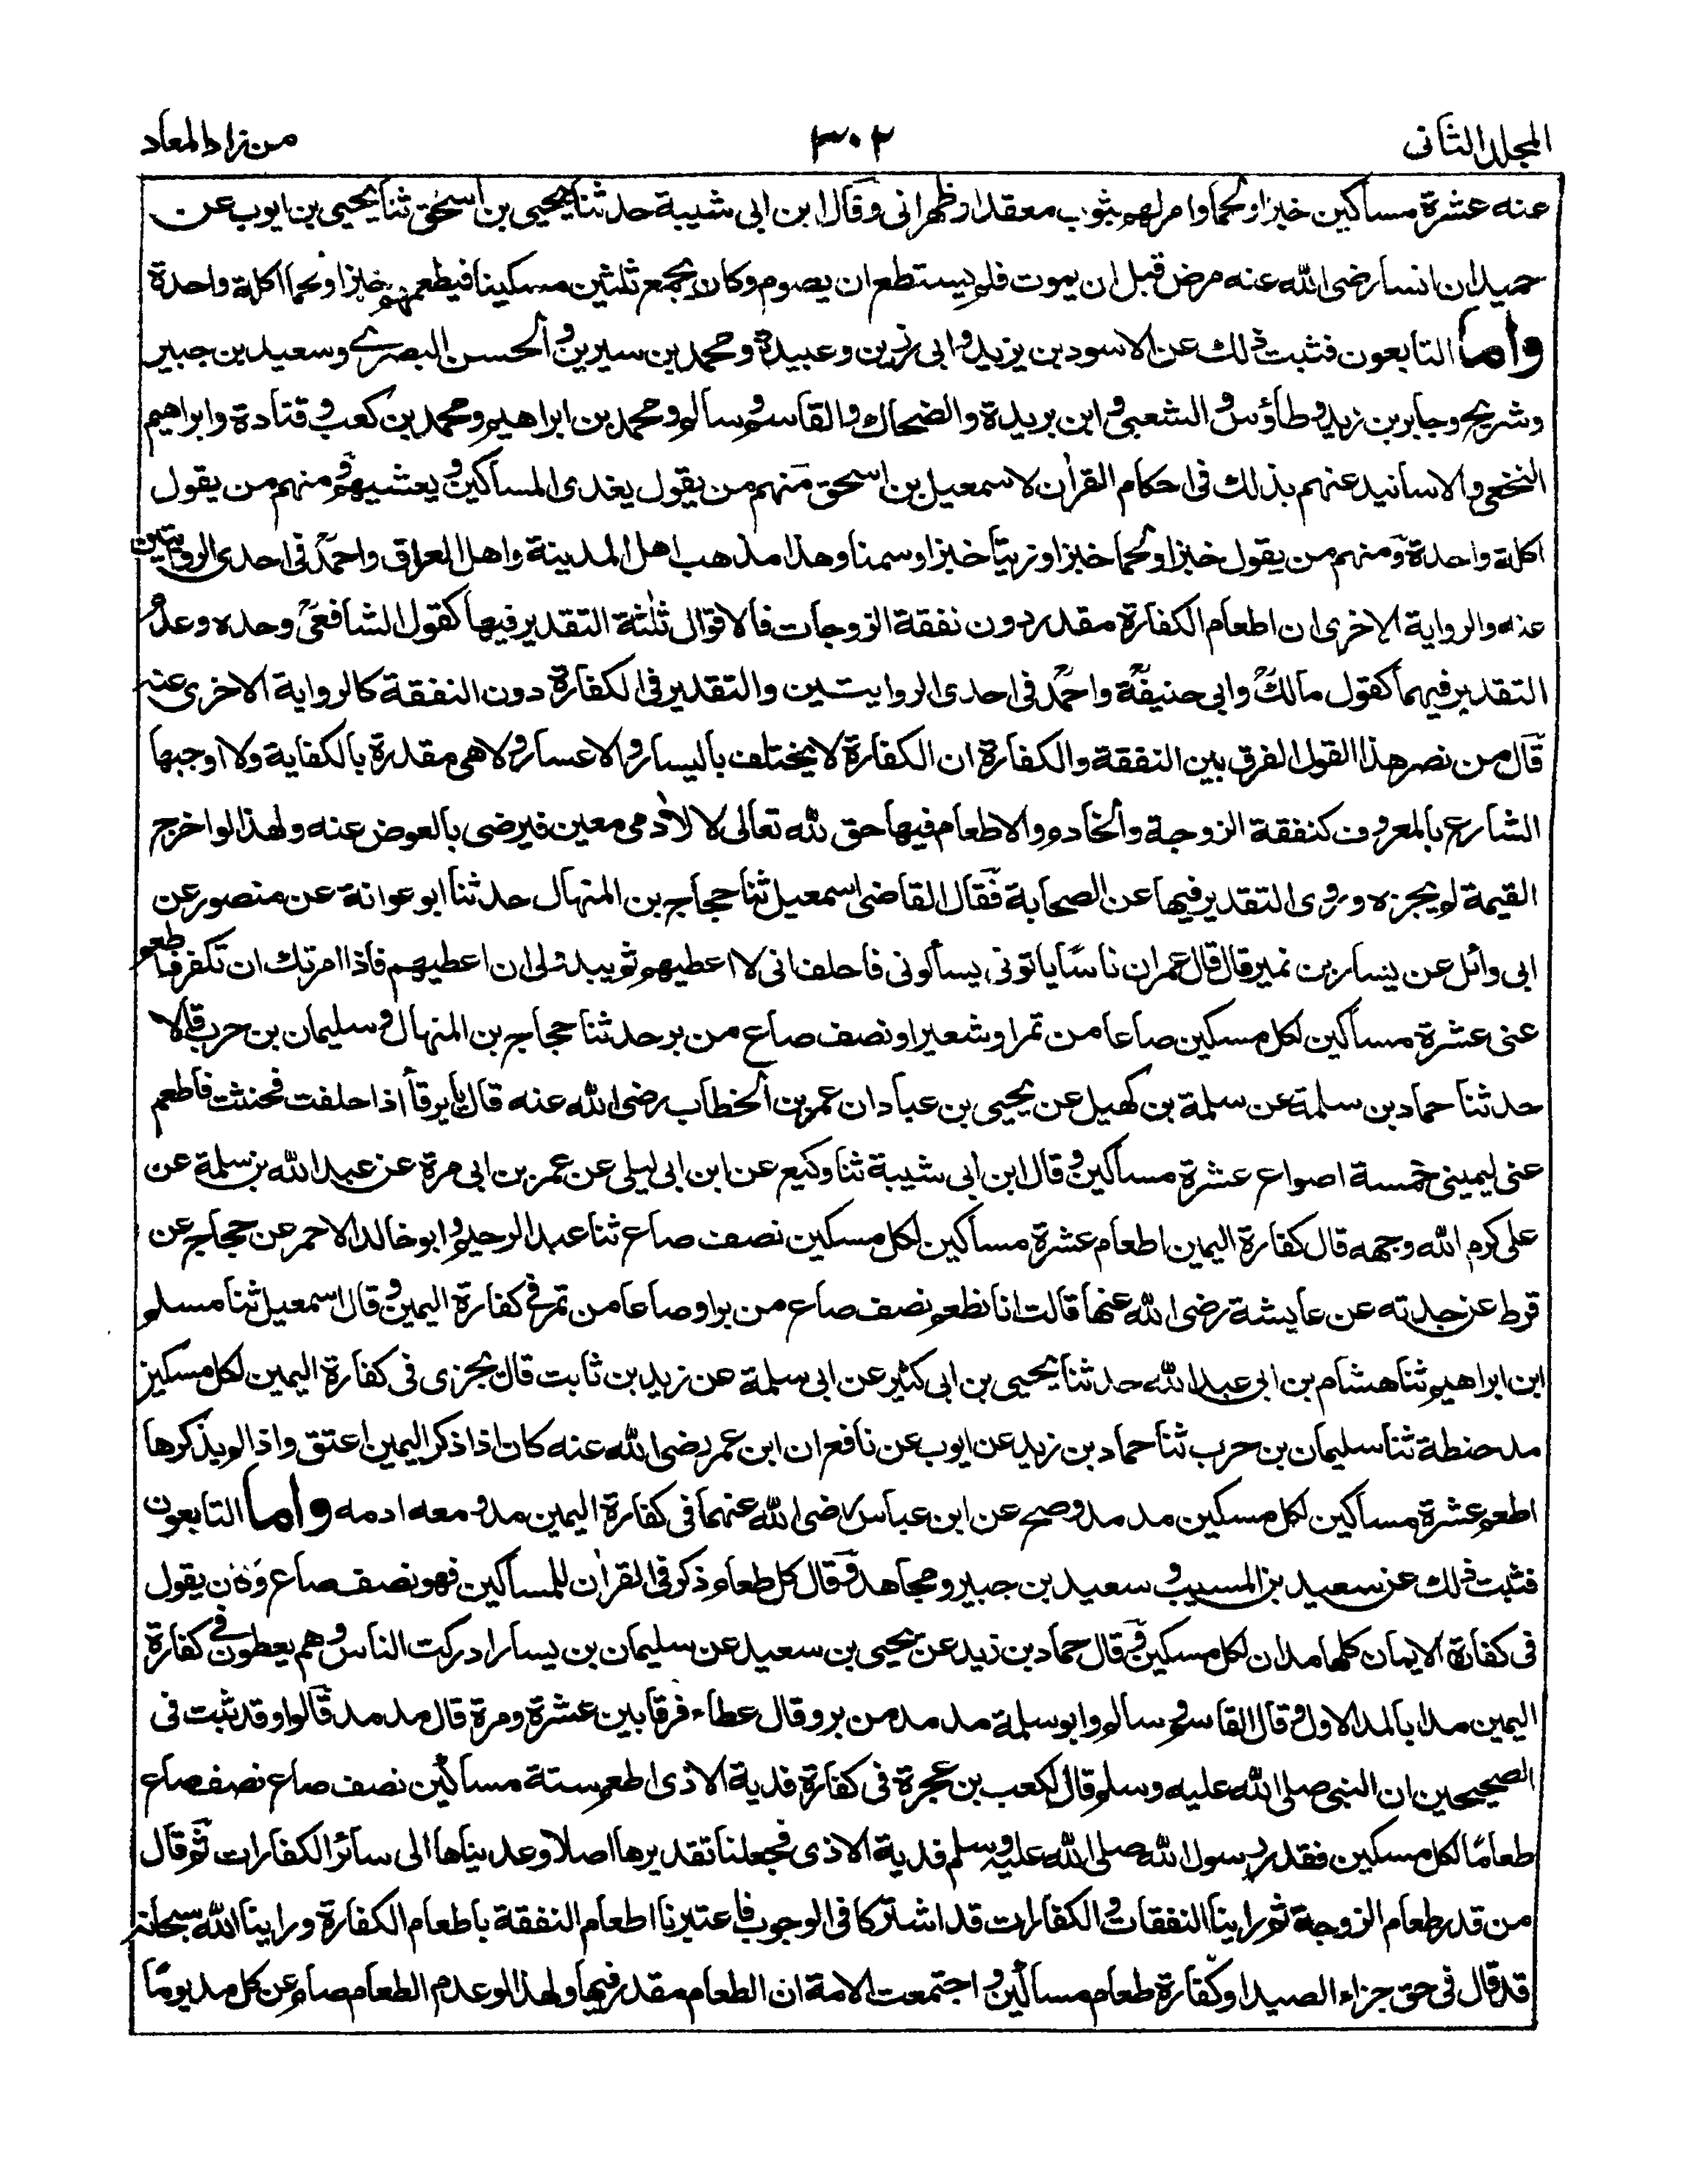 المجلد الثانى
٣٠٢
من زاد المعاد
عنه عشرة مساكين خبزا ولحما وامر لهم بثوب معقد او ظهرانى وقال ابن ابى شيبة حدثنا يحيى بن اسحق ثنا يحيى بن ايوب عن
حميد ان انسا رضى الله عنه مرض قبل ان يموت فلم يستطع ان يصوم وكان يجمع ثلثين مسكينا فيطعمهم خبزا ولحما اكلة واحدة
واما التابعون فثبت ذلك عن الاسود بن يزيد وابى رزين وعبيدة ومحمد بن سيرين والحسن البصرى وسعيد بن جبير
وشريح وجابر بن زيد وطاؤس والشعبى وابن بريدة والضحاك والقاسم وسالم ومحمد بن ابراهيم ومحمد بن كعب وقتادة وابراهيم
النخعى والاسانيد عنهم بذلك فى احكام القرآن لاسمعيل بن اسحق منهم من يقول يغدى المساكين ويعشيهم ومنهم من يقول
اكلة واحدة ومنهم من يقول خبزا ولحما خبزا وزيتا خبزا وسمنا وهذا مذهب اهل المدينة واهل العراق واحمد فى احدى الروايتين
عنه والرواية الاخرى ان اطعام الكفارة مقدر دون نفقة الزوجات فالاقوال ثلثة التقدير فيها كقول الشافعى وحده وعدم
التقدير فيهما كقول مالك وابى حنيفة واحمد فى احدى الروايتين والتقدير فى الكفارة دون النفقة كالرواية الاخرى عنه
قال من نصر هذا القول الفرق بين النفقة والكفارة ان الكفارة لا يختلف باليسار والاعسار ولا هى مقدرة بالكفاية ولا اوجبها
الشارع بالمعروف كنفقة الزوجة والخادم والاطعام فيها حق لله تعالى لا لآدمى معين فيرضى بالعوض عنه ولهذا لو اخرج
القيمة لم يجزه وروى التقدير فيها عن الصحابة فقال القاضى اسمعيل ثنا حجاج بن المنهال حدثنا ابو عوانة عن منصور عن
ابى وائل عن يسار بن نمير قال قال عمر ان ناسا ياتونى يسألونى فاحلف انى لا اعطيهم ثم يبدو لى ان اعطيهم فاذا امرتك ان تكفر فاطعم
عنى عشرة مساكين لكل مسكين صاعا من تمر او شعير او نصف صاع من بر حدثنا حجاج بن المنهال وسليمان بن حرب قالا
حدثنا حماد بن سلمة عن سلمة بن كهيل عن يحيى بن عباد ان عمر بن الخطاب رضى الله عنه قال يا يرفأ اذا حلفت فحنثت فاطعم
عنى ليمينى خمسة اصواع عشرة مساكين وقال ابن ابى شيبة ثنا وكيع عن ابن ابى ليلى عن عمر بن ابى مرة عن عبد الله بن سلمة عن
على كرم الله وجهه قال كفارة اليمين اطعام عشرة مساكين لكل مسكين نصف صاع ثنا عبد الرحيم وابو خالد الاحمر عن حجاج عن
قرط عن جدته عن عايشة رضى الله عنها قالت انا نطعم نصف صاع من بر او صاعا من تمر فى كفارة اليمين وقال اسمعيل ثنا مسلم
ابن ابراهيم ثنا هشام بن ابى عبد الله حدثنا يحيى بن ابى كثير عن ابى سلمة عن زيد بن ثابت قال يجزى فى كفارة اليمين لكل مسكين
مد حنطة ثنا سليمان بن حرب ثنا حماد بن زيد عن ايوب عن نافع ان ابن عمر رضى الله عنه كان اذا ذكر اليمين اعتق واذا لم يذكرها
اطعم عشرة مساكين لكل مسكين مد مد وصح عن ابن عباس رضى الله عنهما فى كفارة اليمين مد ومعه ادمه واما التابعون
فثبت ذلك عن سعيد بن المسيب وسعيد بن جبير ومجاهد وقال كل طعام ذكر فى القرآن للمساكين فهو نصف صاع وكان يقول
فى كفارة الايمان كلها مدان لكل مسكين وقال حماد بن زيد عن يحيى بن سعيد عن سليمان بن يسار ادركت الناس وهم يعطون فى كفارة
اليمين مدا بالمد الاول وقال القاسم وسالم وابو سلمة مد مد من بر وقال عطاء فرقا بين عشرة ومرة قال مد مد قالوا وقد ثبت فى
الصحيحين ان النبى صلى الله عليه وسلم قال لكعب بن عجرة فى كفارة فدية الاذى اطعم ستة مساكين نصف صاع نصف صاع
طعاما لكل مسكين فقدر رسول الله صلى الله عليه وسلم فدية الاذى فجعلنا تقديرها اصلا وعديناها الى سائر الكفارات ثم قال
من قدر طعام الزوجة ثم راينا النفقات والكفارات قد اشتركا فى الوجوب فاعتبرنا اطعام النفقة باطعام الكفارة وراينا الله سبحانه
قد قال فى حق جزاء الصيد او كفارة طعام مساكين واجتمعت الامة ان الطعام مقدر فيها ولهذا لو عدم الطعام صام عن كل مد يوما